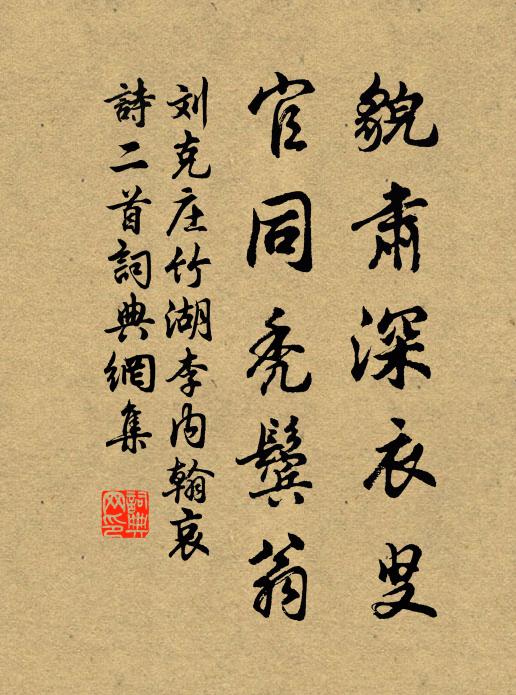 貌肅深衣叟
官同秃鬓翁
刘克庄竹湖李内翰哀
詩二首詞典網集
詞典网印